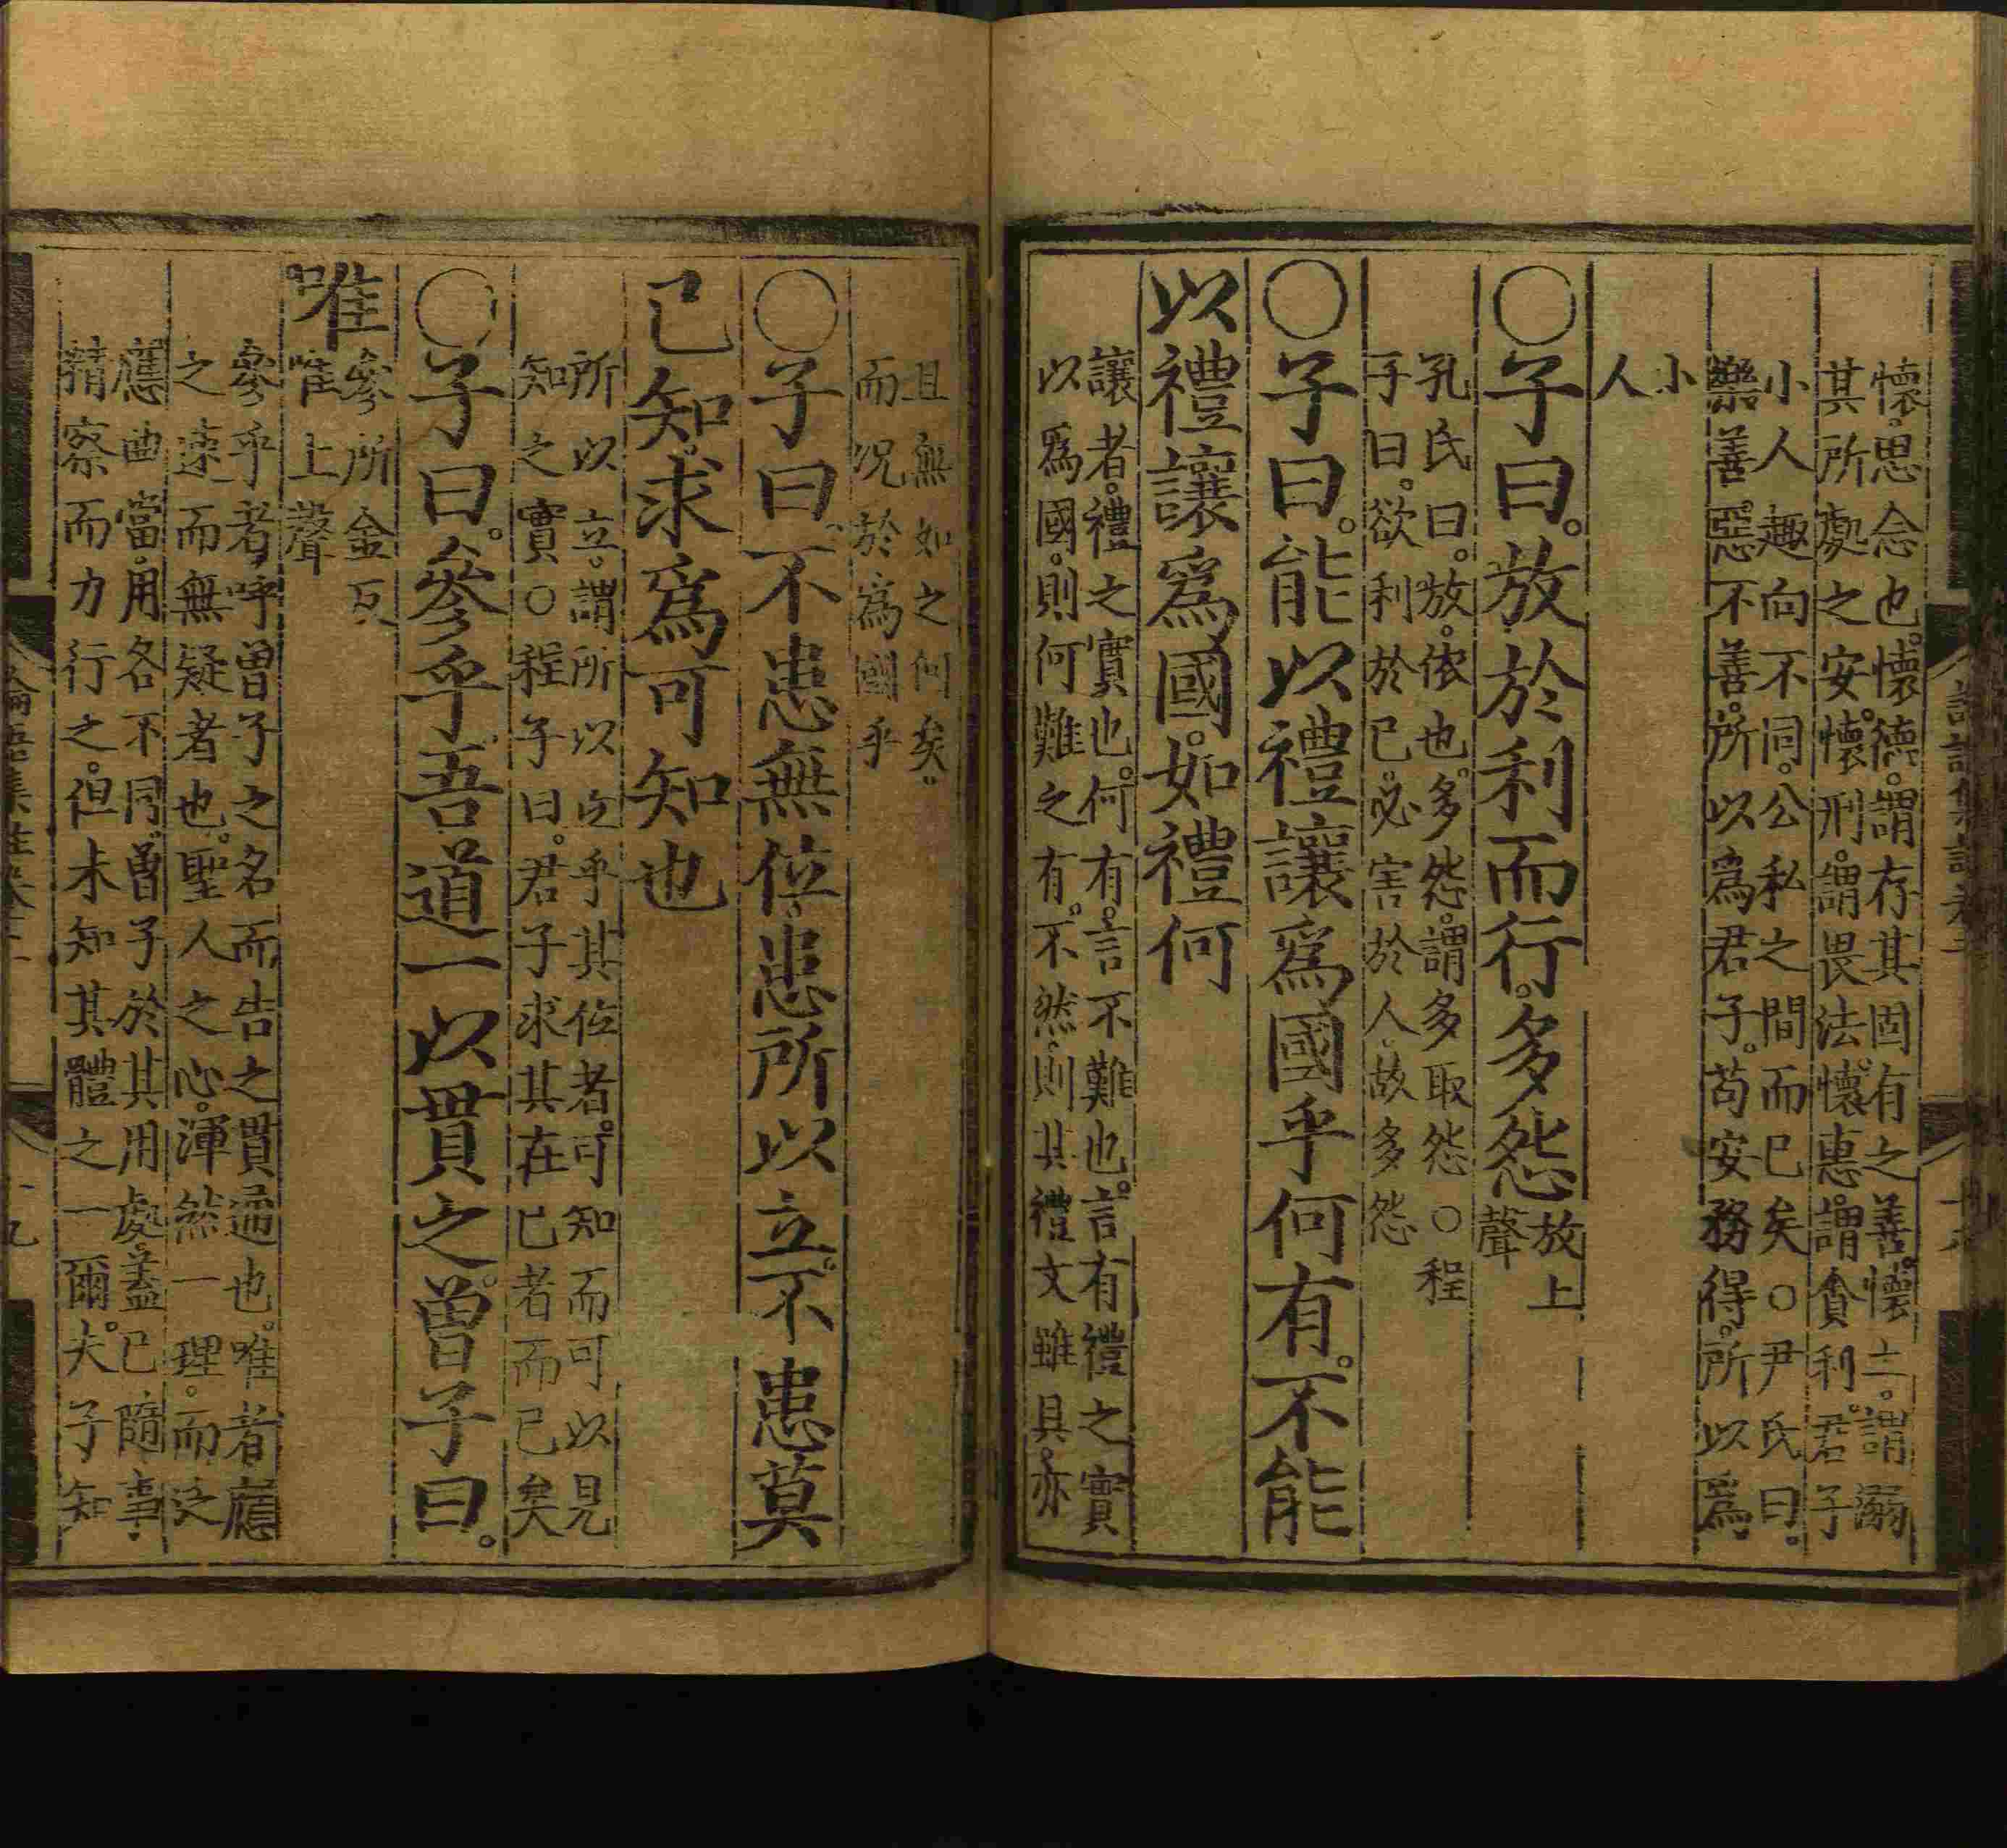 懷。思念也。懷德。謂存其固有之善。懷土。謂溺
其所處之安。懷刑。謂畏法。懷惠。謂貪利。君子
小人趣向不同。公私之間而已矣○尹氏曰。
樂善。惡不善。所以爲君子。苟安務得。所以爲
小
人
○子曰。放於利而行。多怨
放上
聲
孔氏曰。放。依也。多怨。謂多取怨○程
子曰。欲利於已。必害於人。故多怨
○子曰。能以禮讓爲國乎何有。不能
以禮讓爲國。如禮何
讓者。禮之實也。何有。言不難也。言有禮之實
以爲國。則何難之有。不然。則其禮文雖具。亦
且無如之何矣。
而况於爲國乎
○子曰。不患無位。患所以立。不患莫
已知。求爲可知也
所以立。謂所以立乎其位者。可知。謂可以見
知之實○程子曰。君子求其在已者而已矣
○子曰。參乎吾道一以貫之。曾子曰。
唯
參所金反
唯上聲
參乎者。呼曾子之名而告之貫通也。唯者應
之速而無疑者也。聖人之心。渾然一理。而泛
應曲當。用各不同。曾子於其用處。蓋已隨事
精察而力行之。但未知其體之一爾。夫子知
論語集註卷二
十九